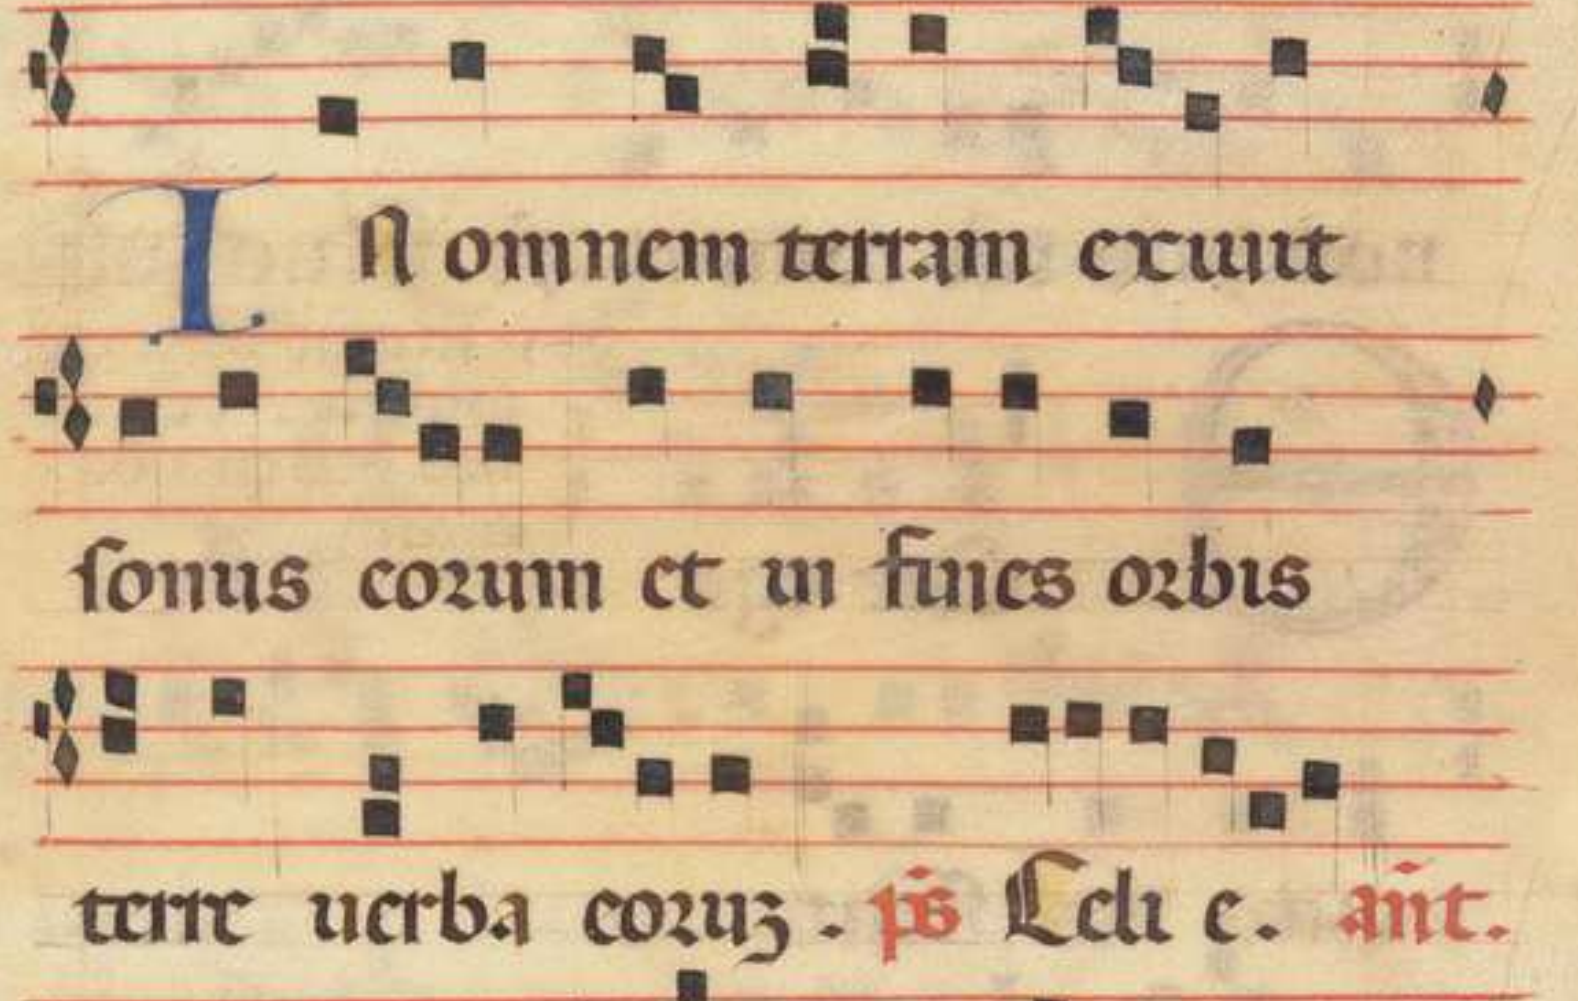 IN omnem terram exiuit
sonus eorum et in fines orbis
terre uerba eoruꝫ. ps̄ Celi e. an̄t.